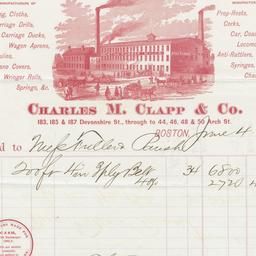 MANUFACTURERS OF
ing, Cloths,
arriage Drills,
Carriage Ducks,
Wagon Aprons,
ulins,
ano Covers,
Wringer Rolls,
Springs, &c.
Prop-Hosts,
Corks,
Car, Coac
Locomotive
Anti-Rattlers,
Springs,
CHARLES M. CLAPP & CO.
183, 185 & 187 Devonshire St., through to 44, 46, 48 & 50 Arch St.
BOSTON, June 4
d to Mess Fuller &
200 ft 4 in 3 ply Belt 34 68 00
40% 27 20